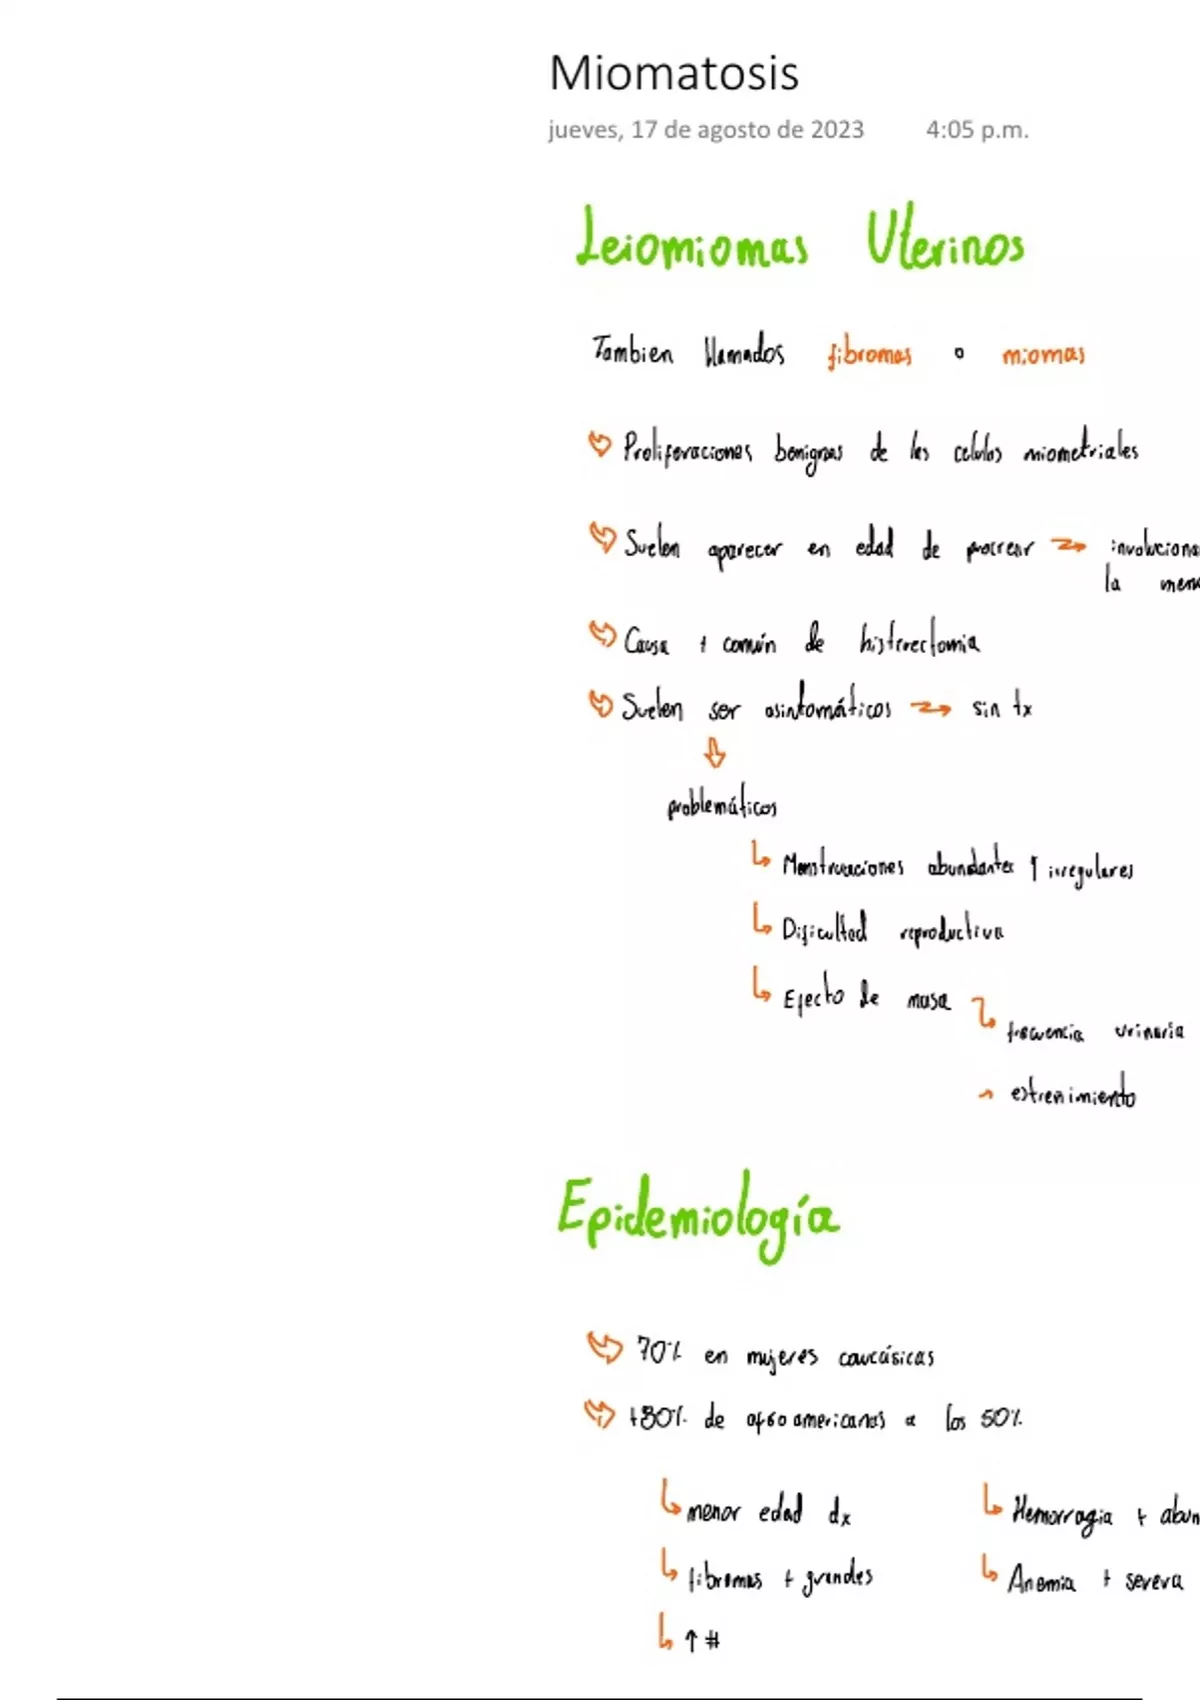 Miomatosis
jueves, 17 de agosto de 2023 4:05 p.m.
Leiomiomas Uterinos
Tambien llamados fibromas o miomas
Proliferaciones benignas de las celulas miometriales
Suelen aparecer en edad de procrear → involuciona
la men
Causa + común de histerectomia
Suelen ser asintomáticos → sin tx
problemáticos
Menstruaciones abundantes y irregulares
Dificultad reproductiva
Efecto de masa
frecuencia urinaria
estrenimiento
Epidemiología
70% en mujeres caucásicas
+80% de afroamericanas a los 50%
menor edad dx Hemorragia + abun
fibromas + grandes Anemia + severa
↑ #